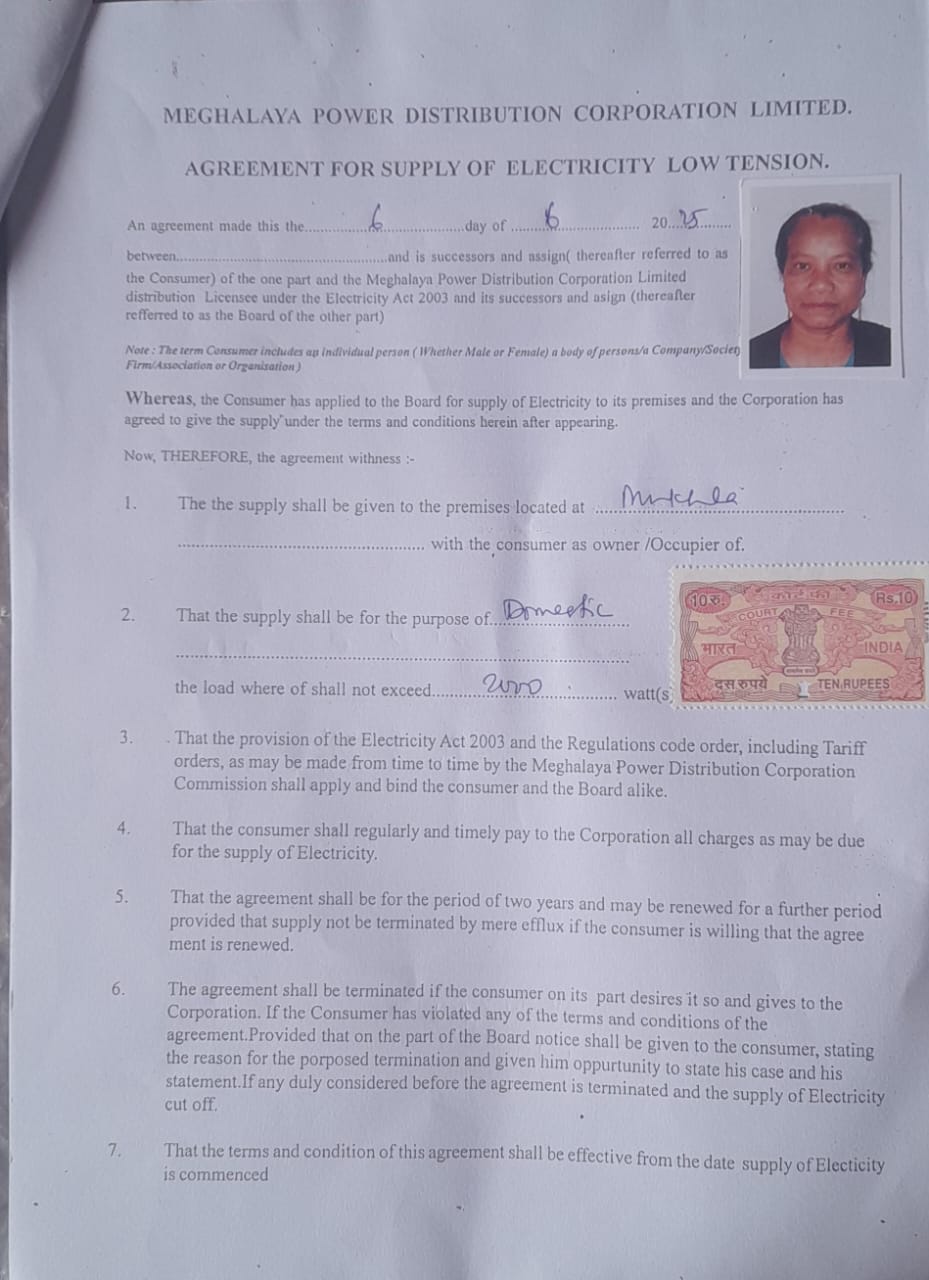 MEGHALAYA POWER DISTRIBUTION CORPORATION LIMITED.
AGREEMENT FOR SUPPLY OF ELECTRICITY LOW TENSION.
An agreement made this the.................6....................day of .........6.................... 20...25........
between....................................................and is successors and assign( thereafter referred to as
the Consumer) of the one part and the Meghalaya Power Distribution Corporation Limited
distribution Licensee under the Electricity Act 2003 and its successors and asign (thereafter
refferred to as the Board of the other part)
Note : The term Consumer includes an individual person ( Whether Male or Female) a body of persons/a Company/Societ
Firm/Association or Organisation )
Whereas, the Consumer has applied to the Board for supply of Electricity to its premises and the Corporation has
agreed to give the supply under the terms and conditions herein after appearing.
Now, THEREFORE, the agreement withness :-
1. The the supply shall be given to the premises located at ........................................................
.................................................... with the consumer as owner /Occupier of.
2. That the supply shall be for the purpose of...Domestic......
...............................................................................................
the load where of shall not exceed...........2000................ watt(s
10रु. कोर्ट फी Rs.10
COURT FEE
भारत INDIA
दस रुपये TEN RUPEES
3. That the provision of the Electricity Act 2003 and the Regulations code order, including Tariff
orders, as may be made from time to time by the Meghalaya Power Distribution Corporation
Commission shall apply and bind the consumer and the Board alike.
4. That the consumer shall regularly and timely pay to the Corporation all charges as may be due
for the supply of Electricity.
5. That the agreement shall be for the period of two years and may be renewed for a further period
provided that supply not be terminated by mere efflux if the consumer is willing that the agree
ment is renewed.
6. The agreement shall be terminated if the consumer on its part desires it so and gives to the
Corporation. If the Consumer has violated any of the terms and conditions of the
agreement.Provided that on the part of the Board notice shall be given to the consumer, stating
the reason for the porposed termination and given him oppurtunity to state his case and his
statement.If any duly considered before the agreement is terminated and the supply of Electricity
cut off.
7. That the terms and condition of this agreement shall be effective from the date supply of Electicity
is commenced